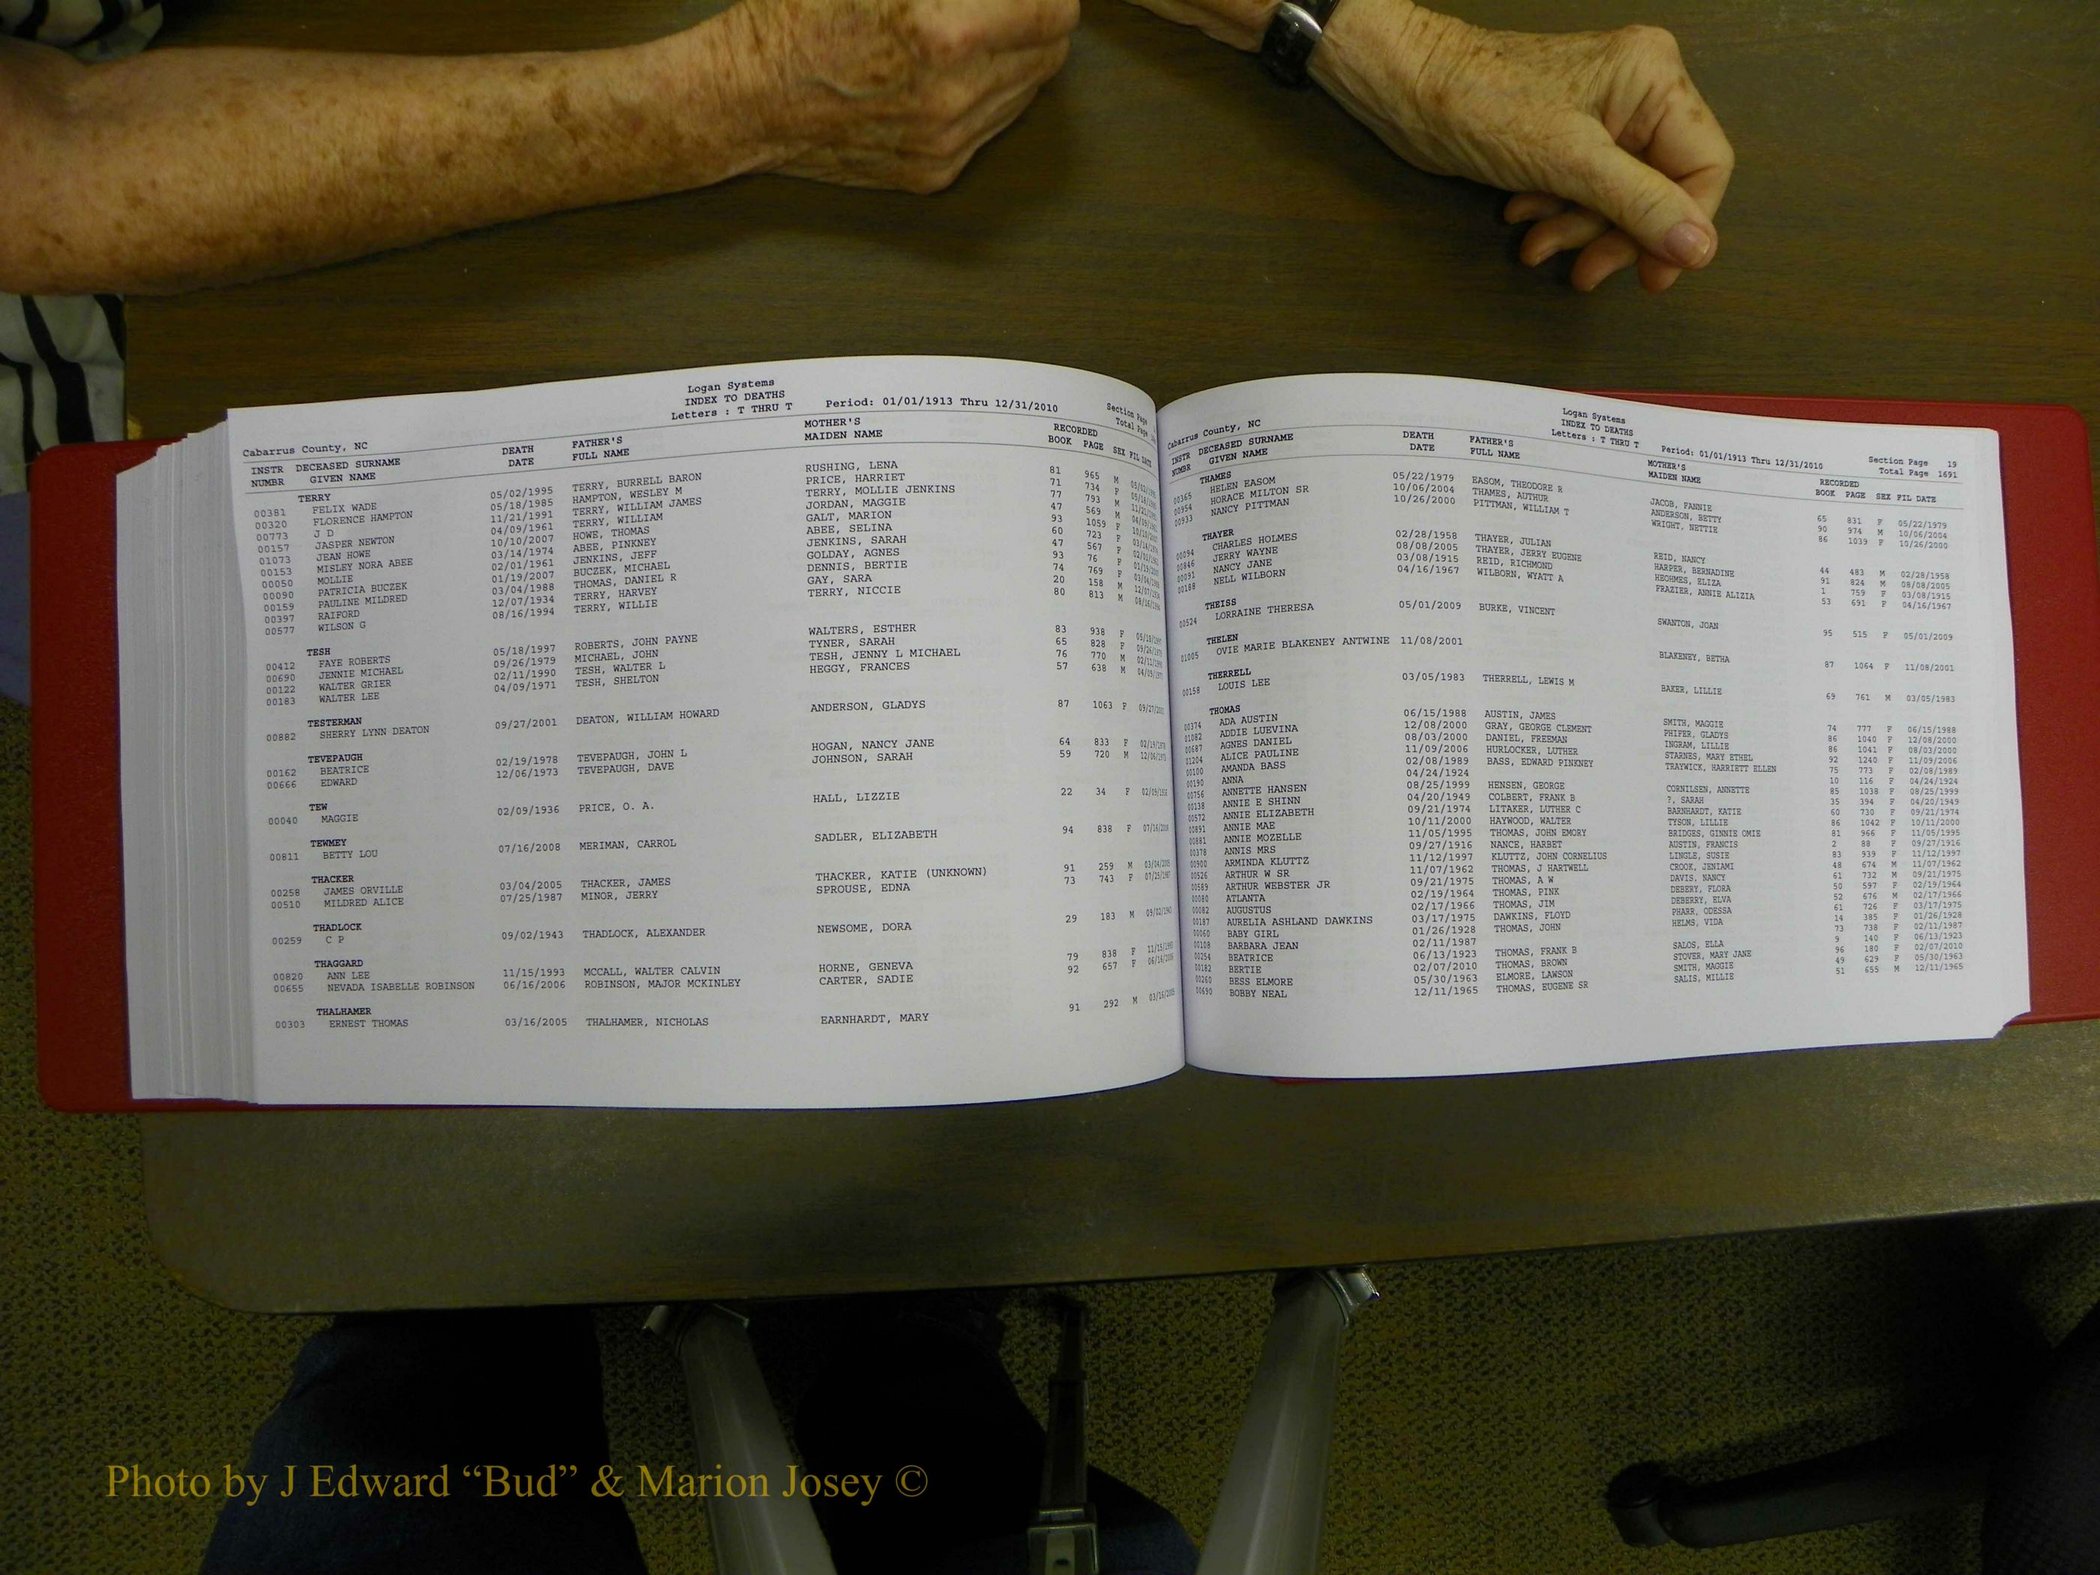 Logan Systems
INDEX TO DEATHS
Letters : T THRU T Period: 01/01/1913 Thru 12/31/2010 Section Page
Cabarrus County, NC Total Page
INSTR DECEASED SURNAME DEATH FATHER'S MOTHER'S RECORDED
NUMBR GIVEN NAME DATE FULL NAME MAIDEN NAME BOOK PAGE SEX FIL DATE
TERRY
00381 FELIX WADE 05/02/1995 TERRY, BURRELL BARON RUSHING, LENA 81 965 M
00320 FLORENCE HAMPTON 05/18/1985 HAMPTON, WESLEY M PRICE, HARRIET 71 734 F
00773 J D 11/21/1991 TERRY, WILLIAM JAMES TERRY, MOLLIE JENKINS 77 793 M
00157 JASPER NEWTON 04/09/1961 TERRY, WILLIAM JORDAN, MAGGIE 47 569 M
01073 JEAN HOWE 10/10/2007 HOWE, THOMAS GALT, MARION 93 1059 F
00153 MISLEY NORA ABEE 03/14/1974 ABEE, PINKNEY ABEE, SELINA 60 723 F
00050 MOLLIE 02/01/1961 JENKINS, JEFF JENKINS, SARAH 47 567 F
00090 PATRICIA BUCZEK 01/19/2007 BUCZEK, MICHAEL GOLDAY, AGNES 93 76 F
00159 PAULINE MILDRED 03/04/1988 THOMAS, DANIEL R DENNIS, BERTIE 74 769 F
00397 RAIFORD 12/07/1934 TERRY, HARVEY GAY, SARA 20 158 M
00577 WILSON G 08/16/1994 TERRY, WILLIE TERRY, NICCIE 80 813 M
TESH
00412 FAYE ROBERTS 05/18/1997 ROBERTS, JOHN PAYNE WALTERS, ESTHER 83 938 F
00690 JENNIE MICHAEL 09/26/1979 MICHAEL, JOHN TYNER, SARAH 65 828 F
00122 WALTER GRIER 02/11/1990 TESH, WALTER L TESH, JENNY L MICHAEL 76 770 M
00183 WALTER LEE 04/09/1971 TESH, SHELTON HEGGY, FRANCES 57 638 M
TESTERMAN
00882 SHERRY LYNN DEATON 09/27/2001 DEATON, WILLIAM HOWARD ANDERSON, GLADYS 87 1063 F 09/27/2001
TEVEPAUGH
00162 BEATRICE 02/19/1978 TEVEPAUGH, JOHN L HOGAN, NANCY JANE 64 833 F 02/19/1978
00666 EDWARD 12/06/1973 TEVEPAUGH, DAVE JOHNSON, SARAH 59 720 M 12/06/1973
TEW
00040 MAGGIE 02/09/1936 PRICE, O. A. HALL, LIZZIE 22 34 F 02/09/1936
TEWMEY
00811 BETTY LOU 07/16/2008 MERIMAN, CARROL SADLER, ELIZABETH 94 838 F 07/16/2008
THACKER
00258 JAMES ORVILLE 03/04/2005 THACKER, JAMES THACKER, KATIE (UNKNOWN) 91 259 M 03/04/2005
00510 MILDRED ALICE 07/25/1987 MINOR, JERRY SPROUSE, EDNA 73 743 F 07/25/1987
THADLOCK
00259 C P 09/02/1943 THADLOCK, ALEXANDER NEWSOME, DORA 29 183 M 09/02/1943
THAGGARD
00820 ANN LEE 11/15/1993 MCCALL, WALTER CALVIN HORNE, GENEVA 79 838 F 11/15/1993
00655 NEVADA ISABELLE ROBINSON 06/16/2006 ROBINSON, MAJOR MCKINLEY CARTER, SADIE 92 657 F 06/16/2006
THALHAMER
00303 ERNEST THOMAS 03/16/2005 THALHAMER, NICHOLAS EARNHARDT, MARY 91 292 M 03/16/2005
Logan Systems
INDEX TO DEATHS
Letters : T THRU T Period: 01/01/1913 Thru 12/31/2010 Section Page 19
Cabarrus County, NC Total Page 1691
INSTR DECEASED SURNAME DEATH FATHER'S MOTHER'S RECORDED
NUMBR GIVEN NAME DATE FULL NAME MAIDEN NAME BOOK PAGE SEX FIL DATE
THAMES
00365 HELEN EASOM 05/22/1979 EASOM, THEODORE R JACOB, FANNIE 65 831 F 05/22/1979
00954 HORACE MILTON SR 10/06/2004 THAMES, AUTHUR ANDERSON, BETTY 90 974 M 10/06/2004
00933 NANCY PITTMAN 10/26/2000 PITTMAN, WILLIAM T WRIGHT, NETTIE 86 1039 F 10/26/2000
THAYER
00094 CHARLES HOLMES 02/28/1958 THAYER, JULIAN REID, NANCY 44 483 M 02/28/1958
00846 JERRY WAYNE 08/08/2005 THAYER, JERRY EUGENE HARPER, BERNADINE 91 824 M 08/08/2005
00091 NANCY JANE 03/08/1915 REID, RICHMOND HEOHMES, ELIZA 1 759 F 03/08/1915
00188 NELL WILBORN 04/16/1967 WILBORN, WYATT A FRAZIER, ANNIE ALIZIA 53 691 F 04/16/1967
THEISS
00524 LORRAINE THERESA 05/01/2009 BURKE, VINCENT SWANTON, JOAN 95 515 F 05/01/2009
THELEN
01005 OVIE MARIE BLAKENEY ANTWINE 11/08/2001 BLAKENEY, BETHA 87 1064 F 11/08/2001
THERRELL
00158 LOUIS LEE 03/05/1983 THERRELL, LEWIS M BAKER, LILLIE 69 761 M 03/05/1983
THOMAS
00374 ADA AUSTIN 06/15/1988 AUSTIN, JAMES SMITH, MAGGIE 74 777 F 06/15/1988
01082 ADDIE LUEVINA 12/08/2000 GRAY, GEORGE CLEMENT PHIFER, GLADYS 86 1040 F 12/08/2000
00687 AGNES DANIEL 08/03/2000 DANIEL, FREEMAN INGRAM, LILLIE 86 1041 F 08/03/2000
01204 ALICE PAULINE 11/09/2006 HURLOCKER, LUTHER STARNES, MARY ETHEL 92 1240 F 11/09/2006
00100 AMANDA BASS 02/08/1989 BASS, EDWARD PINKNEY TRAYWICK, HARRIETT ELLEN 75 773 F 02/08/1989
00190 ANNA 04/24/1924 10 116 F 04/24/1924
00756 ANNETTE HANSEN 08/25/1999 HENSEN, GEORGE CORNILSEN, ANNETTE 85 1038 F 08/25/1999
00138 ANNIE E SHINN 04/20/1949 COLBERT, FRANK B ?, SARAH 35 394 F 04/20/1949
00572 ANNIE ELIZABETH 09/21/1974 LITAKER, LUTHER C BARNHARDT, KATIE 60 730 F 09/21/1974
00891 ANNIE MAE 10/11/2000 HAYWOOD, WALTER TYSON, LILLIE 86 1042 F 10/11/2000
00881 ANNIE MOZELLE 11/05/1995 THOMAS, JOHN EMORY BRIDGES, GINNIE OMIE 81 966 F 11/05/1995
00378 ANNIS MRS 09/27/1916 NANCE, HARBET AUSTIN, FRANCIS 2 88 F 09/27/1916
00900 ARMINDA KLUTTZ 11/12/1997 KLUTTZ, JOHN CORNELIUS LINGLE, SUSIE 83 939 F 11/12/1997
00526 ARTHUR W SR 11/07/1962 THOMAS, J HARTWELL CROOK, JENIAMI 48 674 M 11/07/1962
00589 ARTHUR WEBSTER JR 09/21/1975 THOMAS, A W DAVIS, NANCY 61 732 M 09/21/1975
00080 ATLANTA 02/19/1964 THOMAS, PINK DEBERY, FLORA 50 597 F 02/19/1964
00082 AUGUSTUS 02/17/1966 THOMAS, JIM DEBERRY, ELVA 52 676 M 02/17/1966
00187 AURELIA ASHLAND DAWKINS 03/17/1975 DAWKINS, FLOYD PHARR, ODESSA 61 726 F 03/17/1975
00060 BABY GIRL 01/26/1928 THOMAS, JOHN HELMS, VIDA 14 385 F 01/26/1928
00108 BARBARA JEAN 02/11/1987 73 738 F 02/11/1987
00254 BEATRICE 06/13/1923 THOMAS, FRANK B SALOS, ELLA 9 140 F 06/13/1923
00182 BERTIE 02/07/2010 THOMAS, BROWN STOVER, MARY JANE 96 180 F 02/07/2010
00260 BESS ELMORE 05/30/1963 ELMORE, LAWSON SMITH, MAGGIE 49 629 F 05/30/1963
00690 BOBBY NEAL 12/11/1965 THOMAS, EUGENE SR SALIS, MILLIE 51 655 M 12/11/1965
Photo by J Edward “Bud” & Marion Josey ©